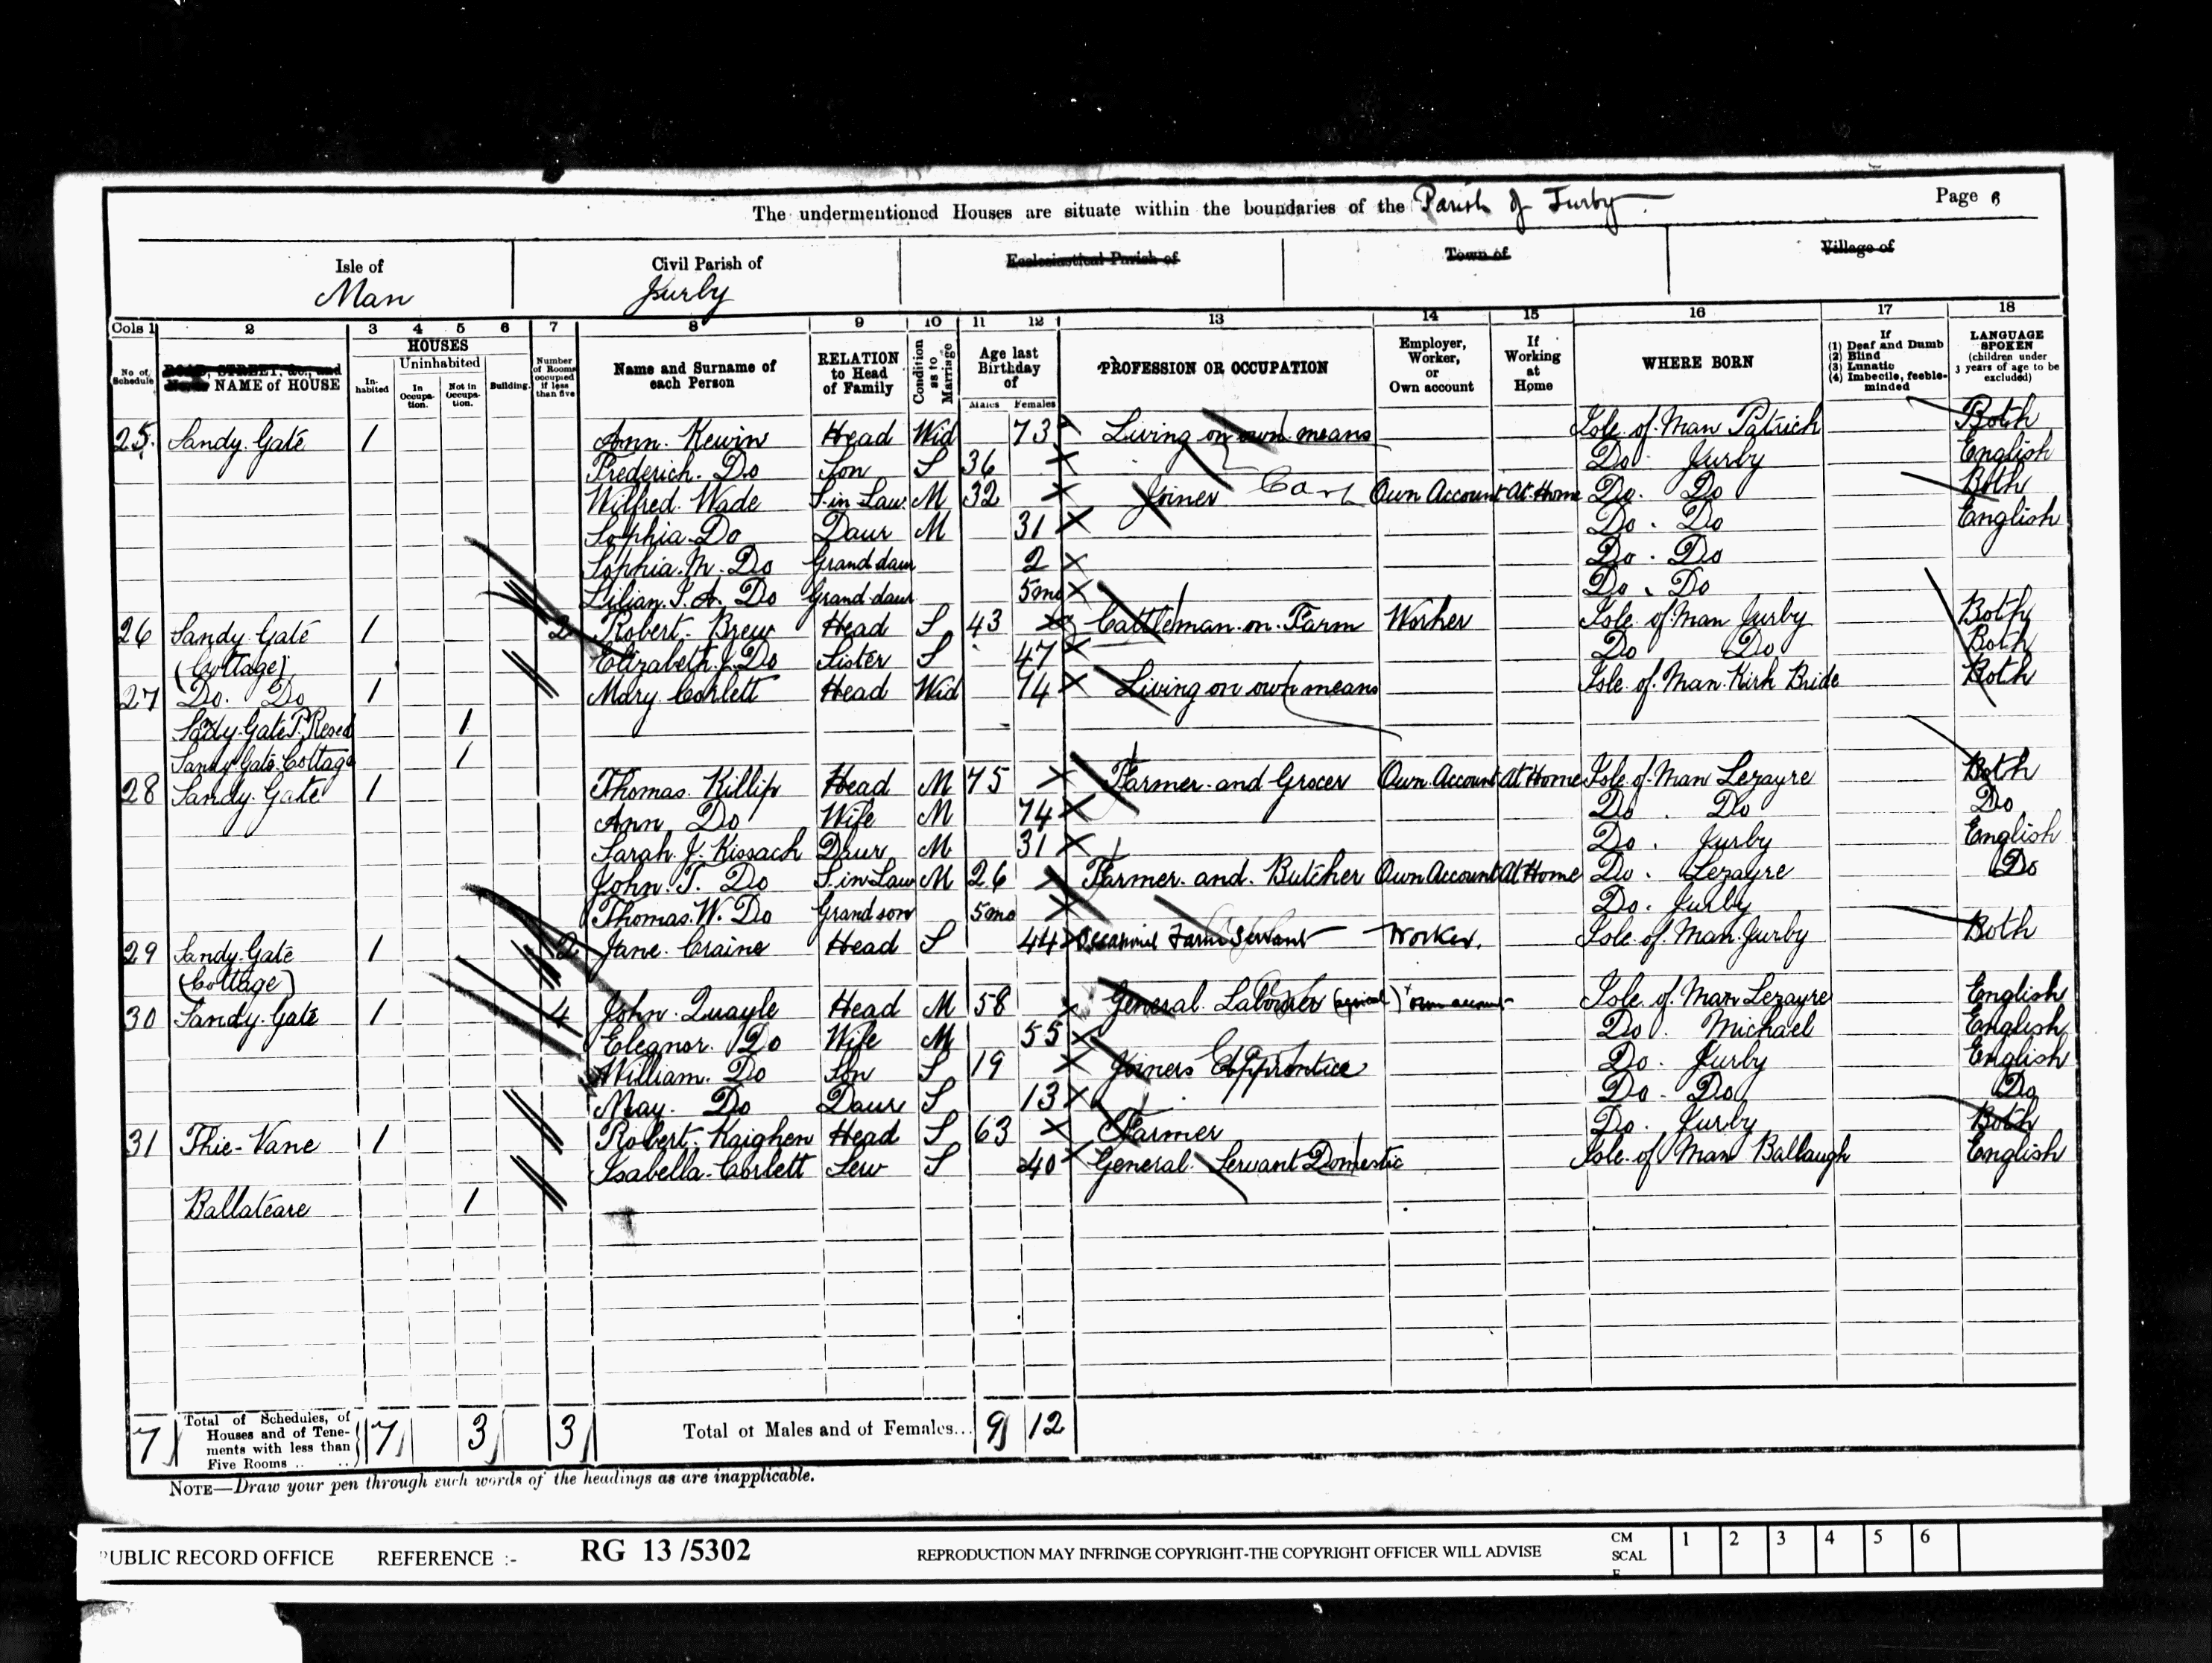 The undermentioned Houses are situate within the boundaries of the Parish of Jurby Page
Isle of Man
Civil Parish of Jurby
Ecclesiastical Parish of
Town of
Village of
Cols 1 2 3 4 5 6 7 8 9 10 11 12 13 14 15 16 17 18
No. of Schedule
ROAD, STREET, &c., and NAME of HOUSE
HOUSES
In-habited
Uninhabited
In Occupa-tion.
Not in Occupa-tion.
Building.
Number of Rooms occupied if less than five
Name and Surname of each Person
RELATION to Head of Family
Condition as to Marriage
Age last Birthday of
Males Females
PROFESSION OR OCCUPATION
Employer, Worker, or Own account
If Working at Home
WHERE BORN
If (1) Deaf and Dumb (2) Blind (3) Lunatic (4) Imbecile, feeble-minded
LANGUAGE SPOKEN (children under 3 years of age to be excluded)
25. Sandy Gate 1 Ann. Kewin Head Wid 73 Living on own means Isle of Man Patrick Both
Frederick. Do Son S 36 Do Jurby English
Wilfred Wade S. in Law. M 32 Joiner Carp Own Account At Home Do. Do Both
Sophia Do Daur M 31 Do. Do English
Sophia. M. Do Grand daur 2 Do. Do
Lilian. S. A. Do Grand daur 5mo Do. Do
26 Sandy Gate 1 2 Robert. Brew Head S 43 Cattleman on Farm Worker Isle of Man Jurby Both
(Cottage) Elizabeth. J. Do Sister S 47 Do Do Both
27 Do. Do 1 Mary Corlett Head Wid 74 Living on own means Isle of Man Kirk Bride Both
Sandy Gate P. Resed 1
Sandy Gate Cottage 1
28 Sandy. Gate 1 Thomas. Killip Head M 75 Farmer and Grocer Own Account At Home Isle of Man Lezayre Both
Ann Do Wife M 74 Do. Do Do
Sarah. J. Kissack Daur M 31 Do. Jurby English
John. T. Do S. in Law M 26 Farmer. and. Butcher Own Account At Home Do. Lezayre Do
Thomas. W. Do Grand son 5mo Do. Jurby
29 Sandy Gate 1 2 Jane. Craine Head S 44 Occasional Farm Servant Worker. Isle of Man Jurby Both
(Cottage)
30 Sandy Gate 1 4 John. Quayle Head M 58 General. Labourer (agricul) own account Isle of Man Lezayre English
Eleanor. Do Wife M 55 Do. Michael English
William. Do Son S 19 Joiners Apprentice Do. Jurby English
May. Do Daur S 13 Do. Do Do
31 Thie-Vane 1 Robert. Kaighen Head S 63 Farmer Do. Jurby Both
Isabella Corlett Serv S 40 General. Servant Domestic Isle of Man Ballaugh English
Ballateare 1
7 Total of Schedules, of Houses and of Tene-ments with less than Five Rooms .. .. 7 3 3 Total of Males and of Females... 9 12
NOTE—Draw your pen through such words of the headings as are inapplicable.
PUBLIC RECORD OFFICE REFERENCE :- RG 13 /5302 REPRODUCTION MAY INFRINGE COPYRIGHT-THE COPYRIGHT OFFICER WILL ADVISE CM SCALE 1 2 3 4 5 6